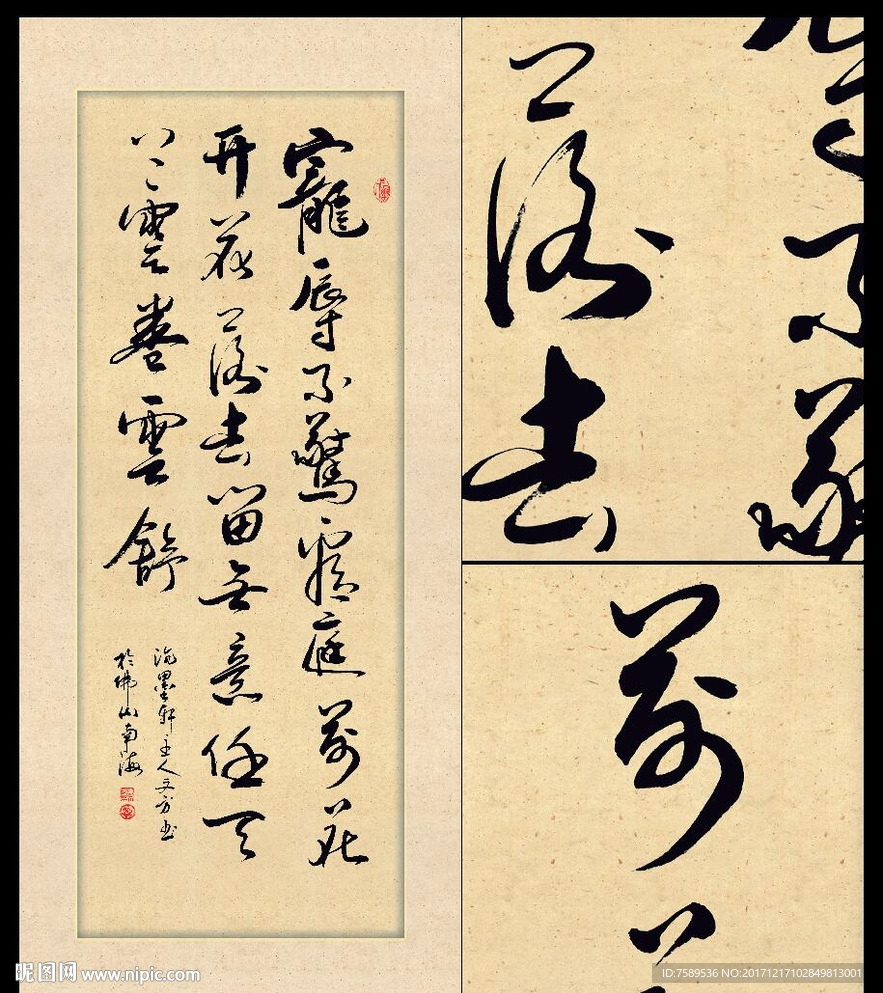 寵辱不驚看庭前花
開花落去留無意任天
雲卷雲舒
墨軒主人 方書
於佛山南海
落去
不驚
前
昵图网 www.nipic.com
ID:7589536 NO:20171217102849813001